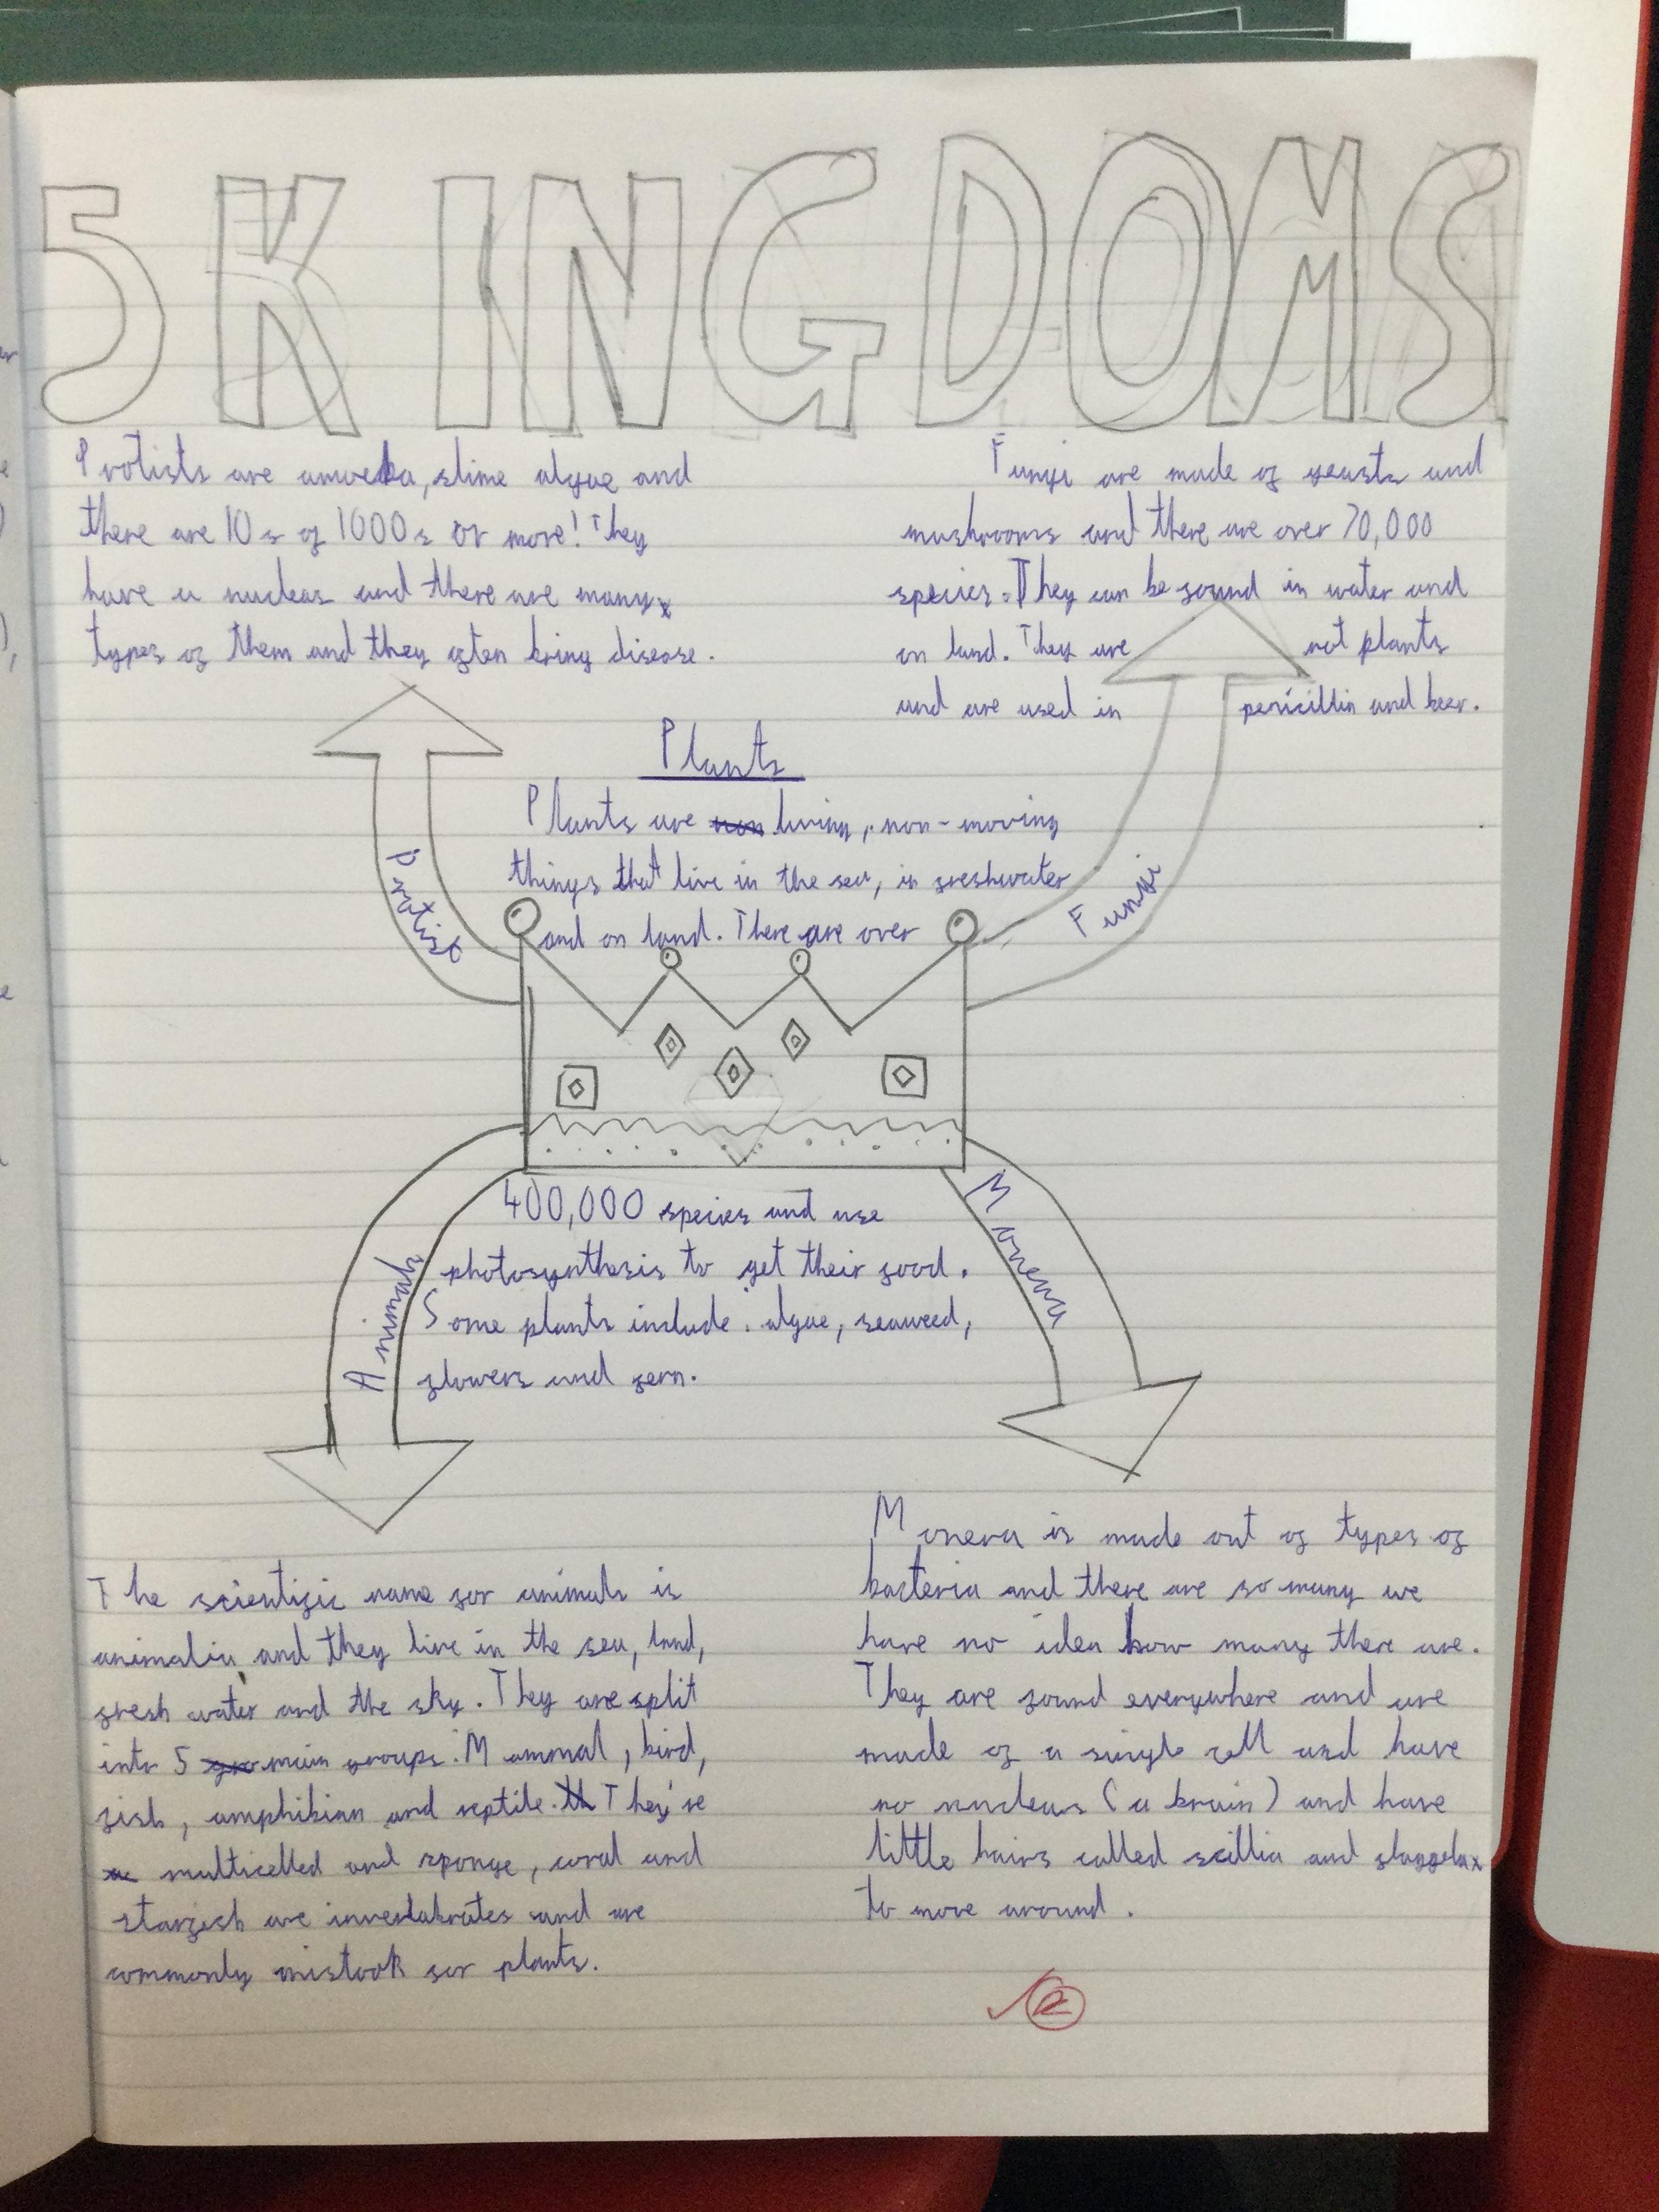 5 KINGDOMS
Protists are amoeba, slime algae and
there are 10s of 1000s or more! They
have a nucleas and there are many
types of them and they often bring disease.
Fungi are made of yeasts and
mushrooms and there are over 70,000
species. They can be found in water and
on land. They are not plants
and are used in penicillin and beer.
Plants
Plants are living, non-moving
things that live in the sea, in freshwater
and on land. There are over
Protist
Fungi
400,000 species and use
photosynthesis to get their food.
Some plants include: algae, seaweed,
flowers and fern.
Animals
Monera
The scientific name for animals is
animalia and they live in the sea, land,
fresh water and the sky. They are split
into 5 main groups. Mammal, bird,
fish, amphibian and reptile. They're
multicelled and sponge, coral and
starfish are invertabrates and are
commonly mistook for plants.
Monera is made out of types of
bacteria and there are so many we
have no idea how many there are.
They are found everywhere and are
made of a single cell and have
no nucleus (a brain) and have
little hairs called scillia and flaggela
to move around.